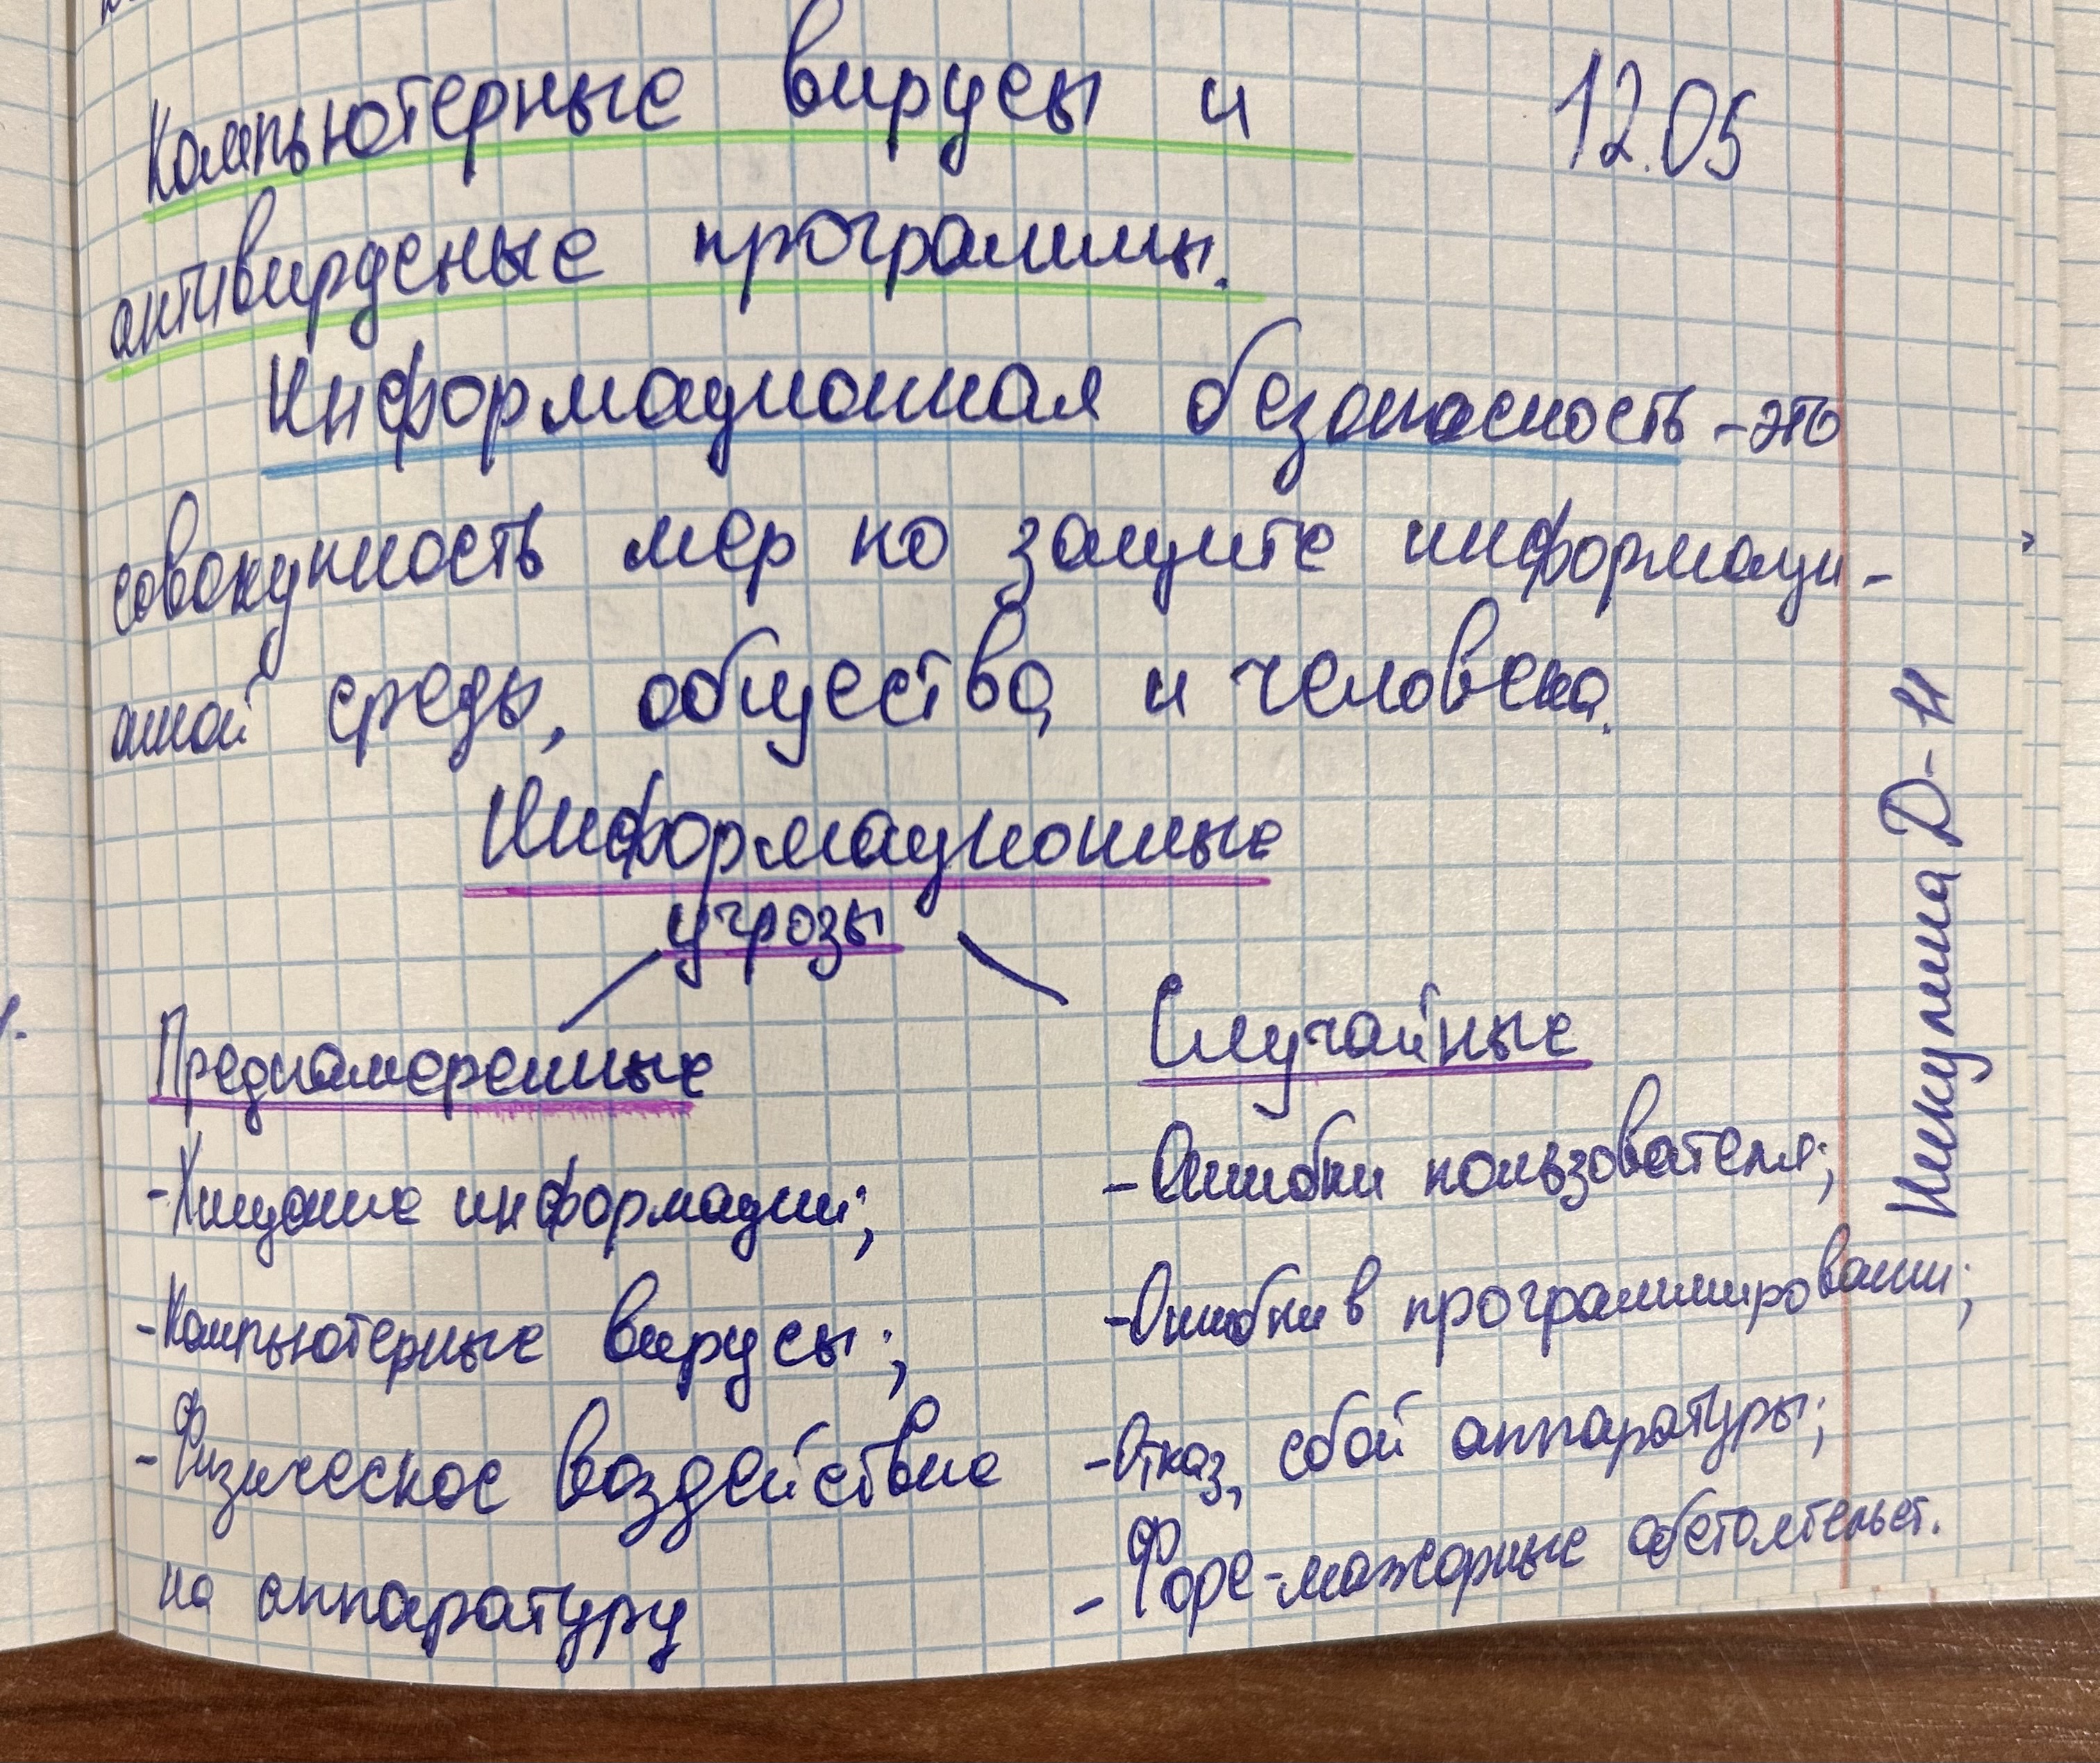 Компьютерные вирусы и
12.05
антивирусные программы.
Информационная безопасность - это
совокупность мер по защите информаци-
онной среды, общества и человека.
Информационные
угрозы
Преднамеренные
Случайные
- Хищение информации;
- Ошибки пользователя;
- Компьютерные вирусы;
- Ошибки в программировании;
- Физическое воздействие
- Отказ, сбой аппаратуры;
на аппаратуру
- Форс-мажорные обстоятельст.